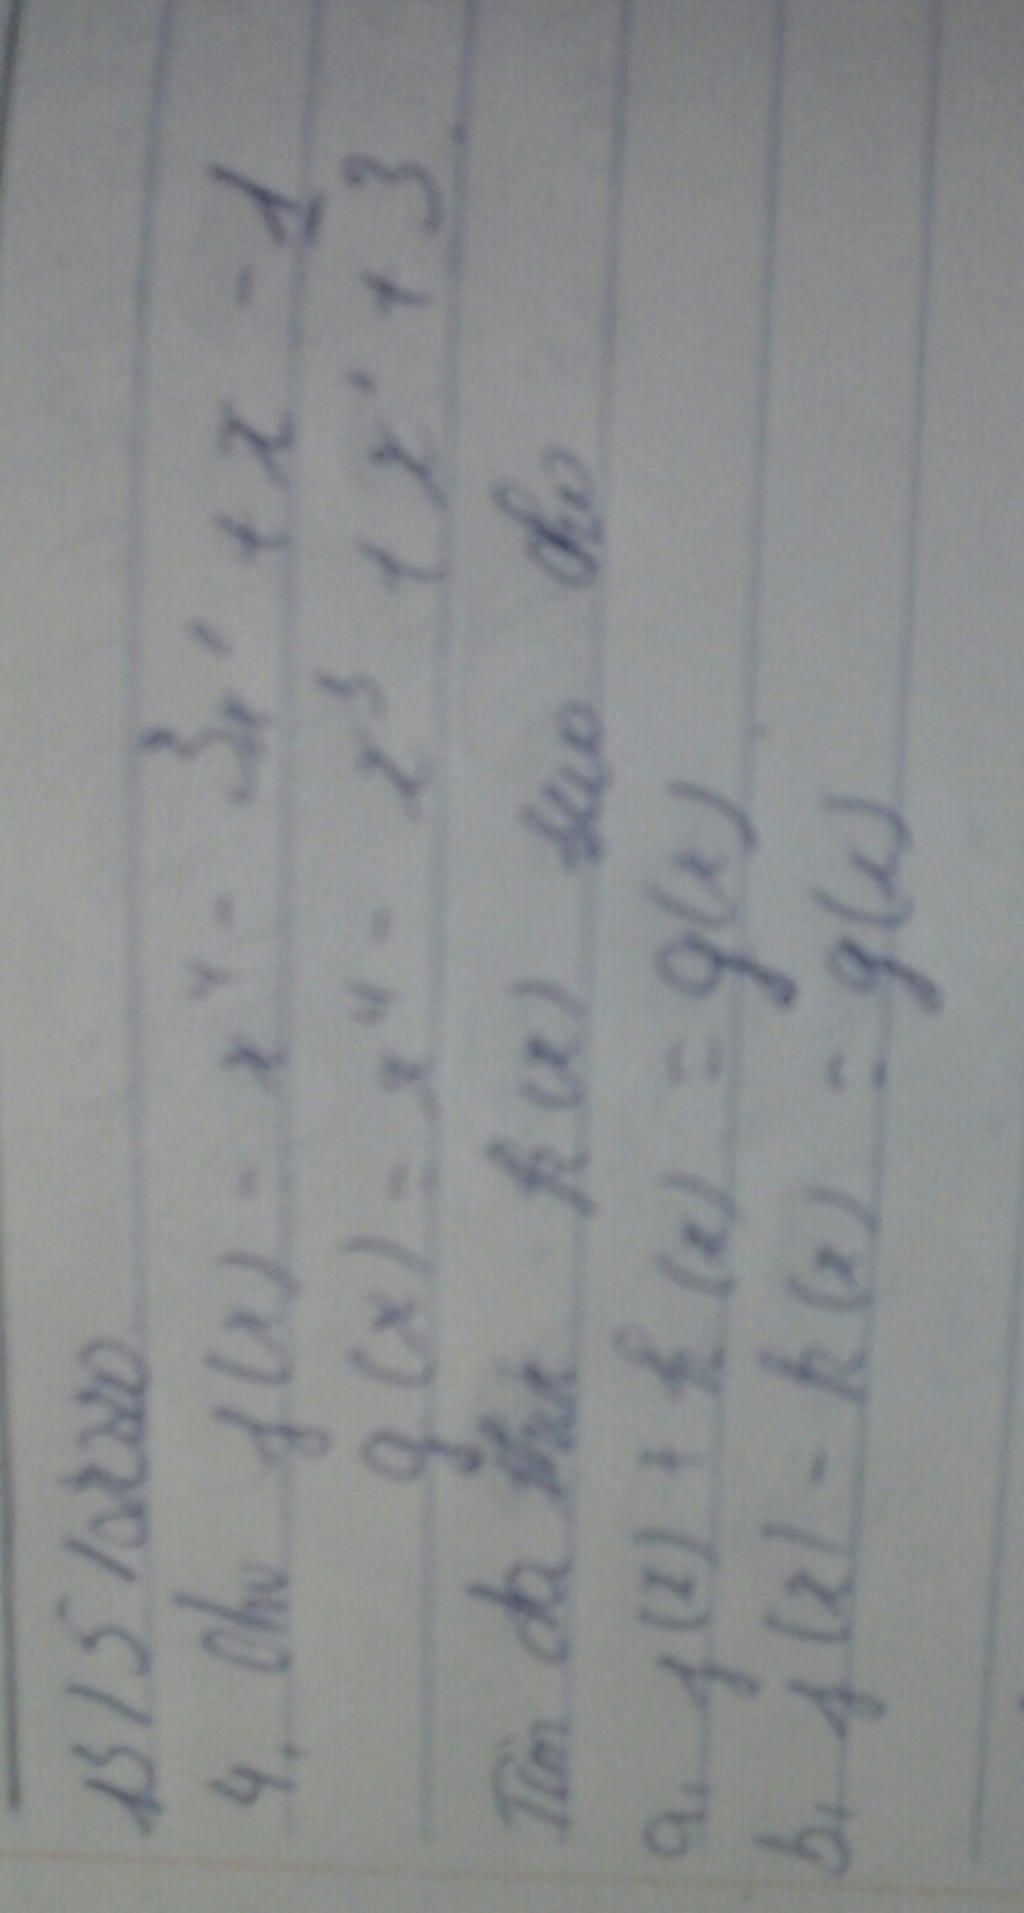 15/5/2020
4. Cho f(x) = x⁴ - 3x² + x - 1
g(x) = x⁴ - x³ + x² + 3
Tìm đa thức h(x) sao cho
a, f(x) + h(x) = g(x)
b, f(x) - h(x) = g(x)